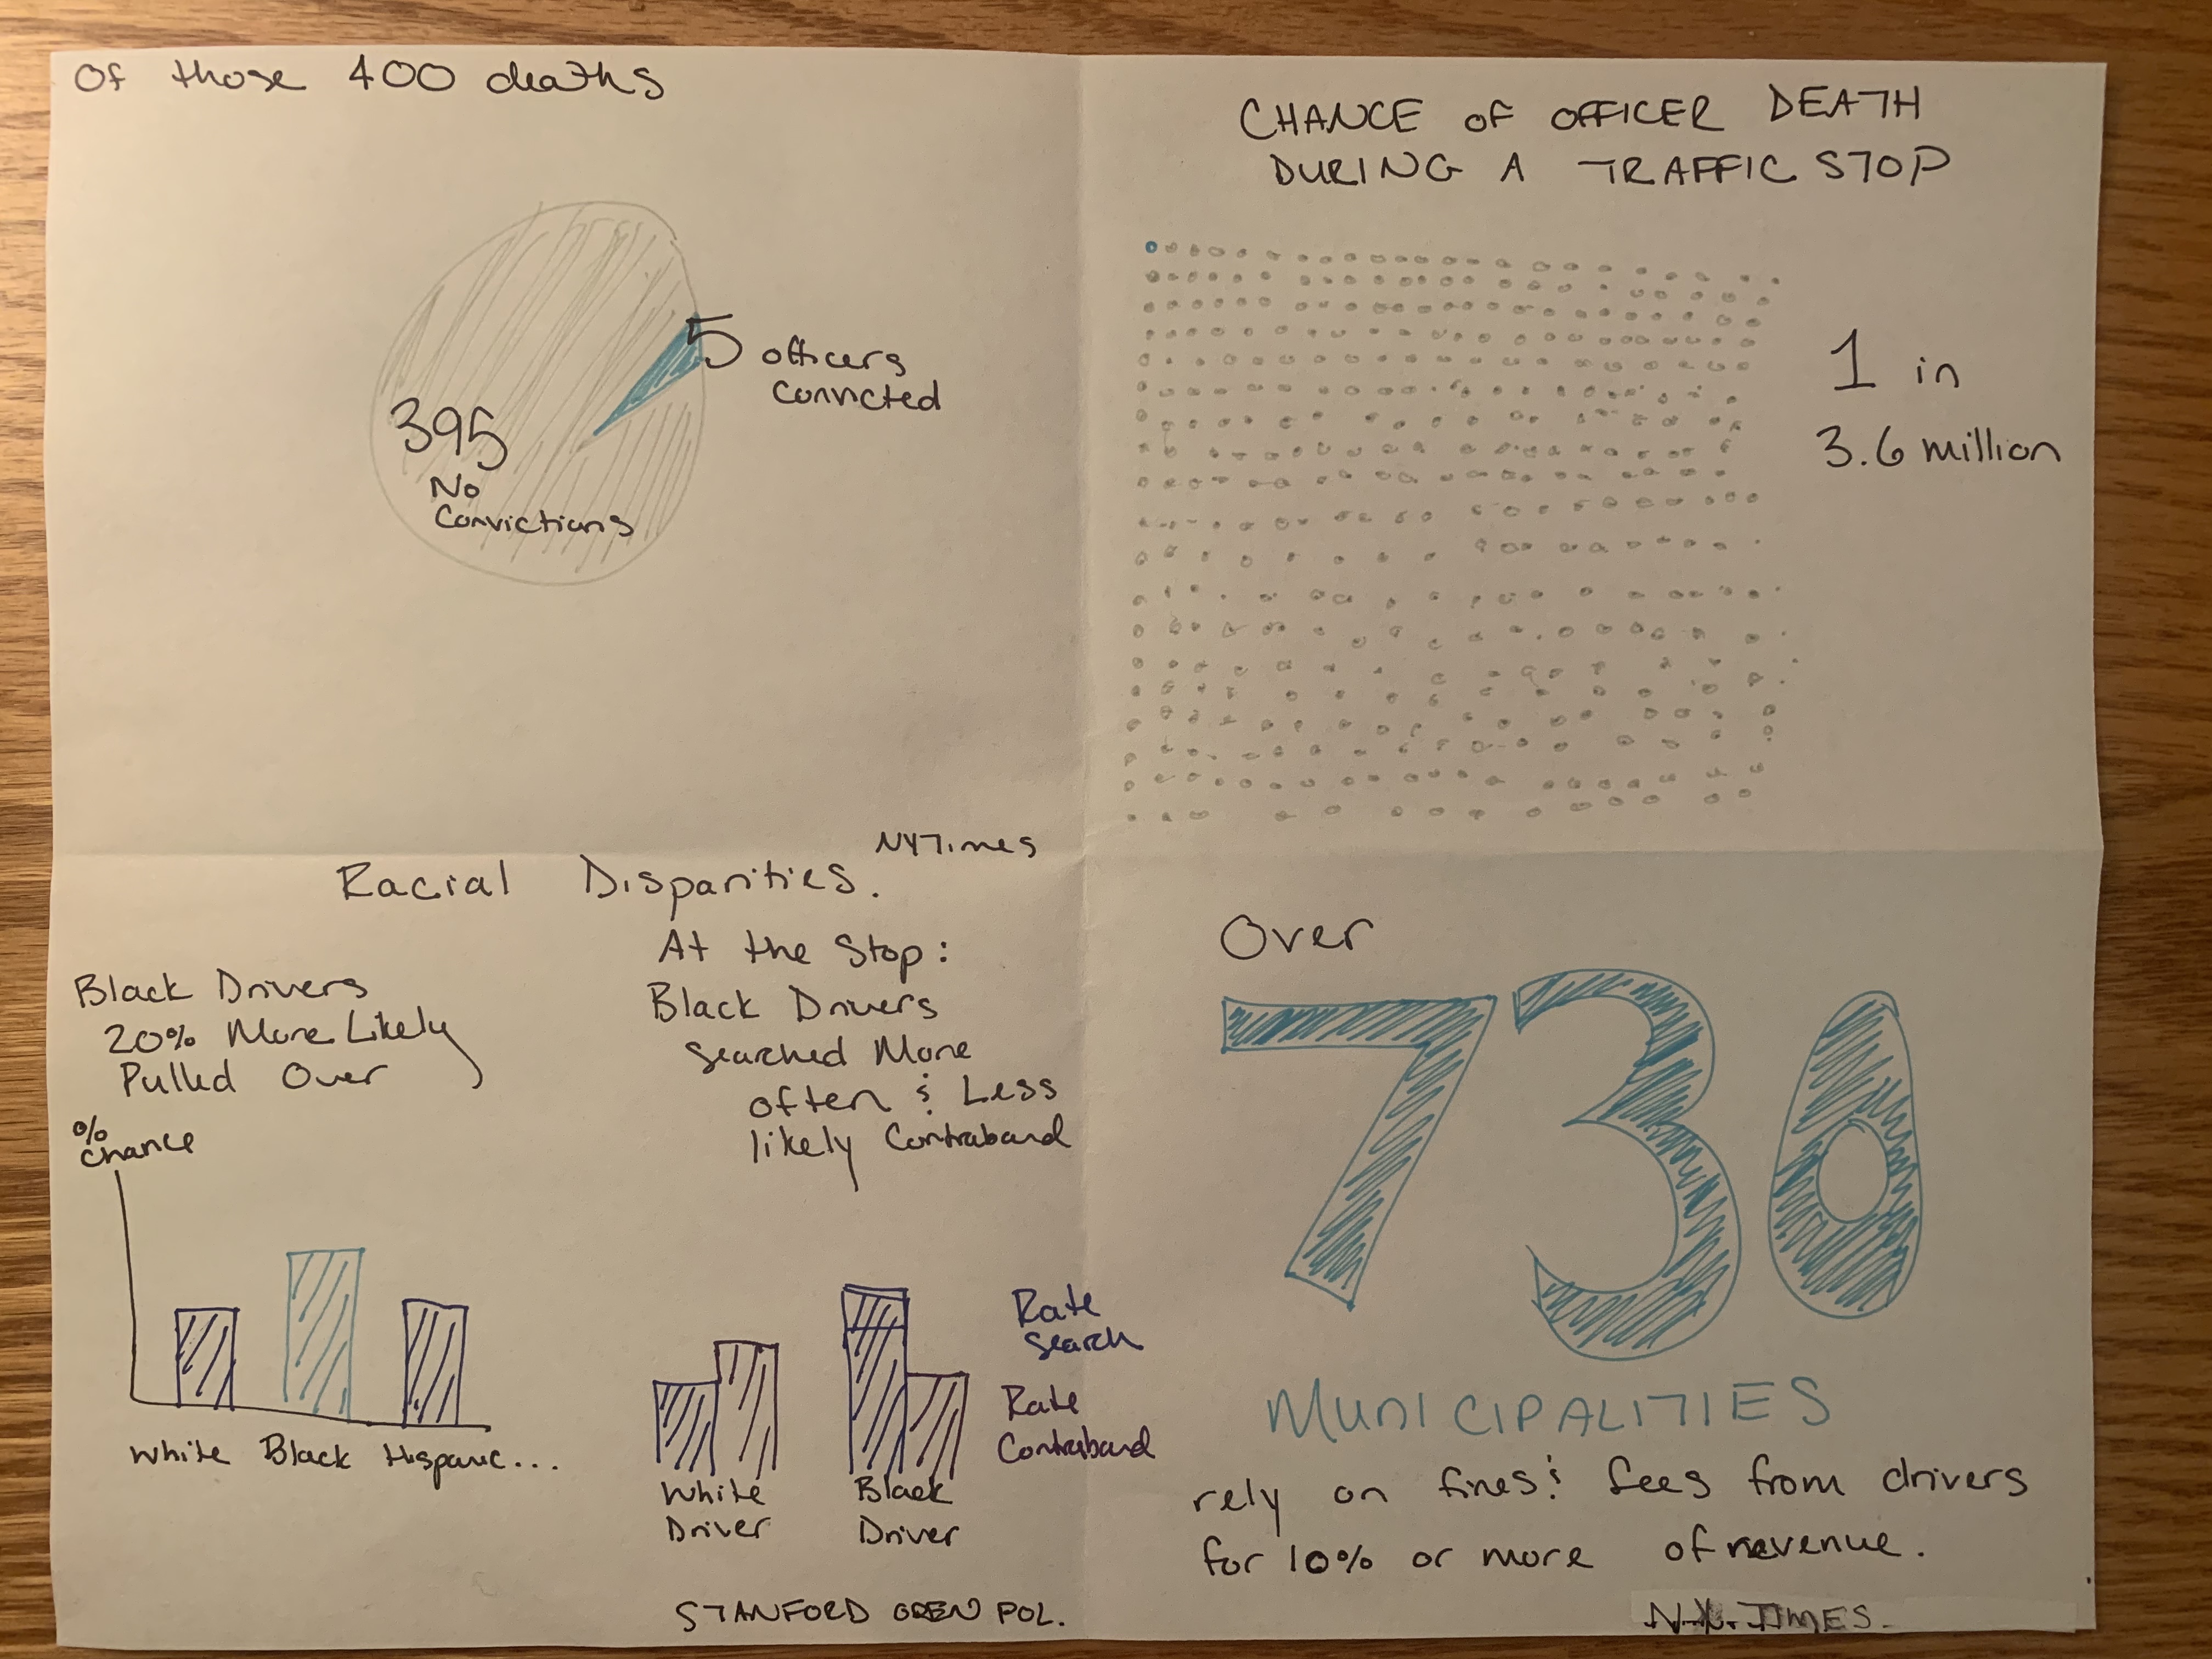 Of those 400 deaths
5 officers
Convicted
395
No
Convictions
NYTimes
CHANCE OF OFFICER DEATH
DURING A TRAFFIC STOP
1 in
3.6 million
Racial Disparities.
Black Drivers
20% More Likely
Pulled Over
% Chance
White Black Hispanic...
At the Stop:
Black Drivers
Searched More
often & Less
likely Contraband
Rate
Search
Rate
Contraband
White
Driver
Black
Driver
STANFORD OPEN POL.
Over
730
MUNICIPALITIES
rely on fines & fees from drivers
for 10% or more of revenue.
N.Y. TIMES.